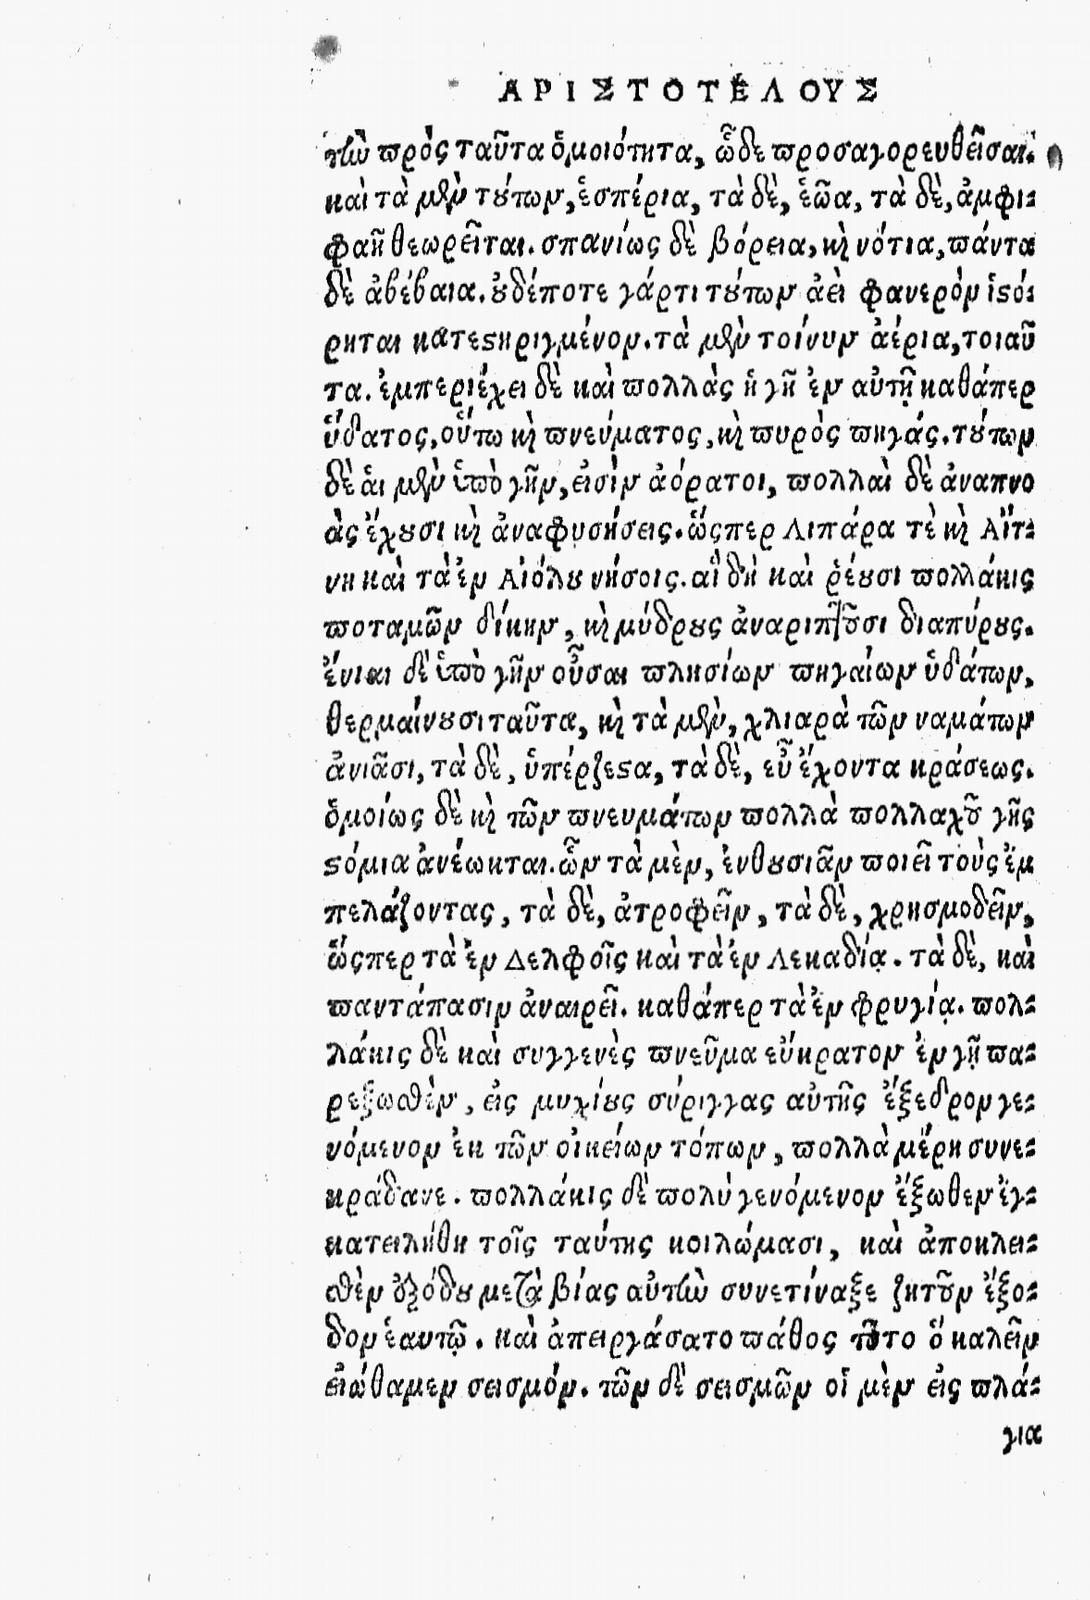 ΑΡΙΣΤΟΤΕΛΟΥΣ
τὴν πρὸς ταῦτα ὁμοιότητα, ὧδε προσαγορευθεῖσαι.
καὶ τὰ μὲν τούτων, ἑσπέρια, τὰ δὲ, ἑῶα, τὰ δὲ, ἀμφι-
φαῆ θεωρεῖται. σπανίως δὲ βόρεια, καὶ νότια, πάντα
δὲ ἀβέβαια. οὐδέποτε γάρ τι τούτων ἀεὶ φανερὸν ἱστό-
ρηται κατεστηριγμένον. τὰ μὲν τοίνυν ἀέρια, τοιαῦ
τα. ἐμπεριέχει δὲ καὶ πολλὰς ἡ γῆ ἐν αὑτῇ καθάπερ
ὕδατος, οὕτω καὶ πνεύματος, καὶ πυρὸς πηγάς. τούτων
δὲ ἁι μὲν ὑπὸ γῆν, εἰσὶν ἀόρατοι, πολλαὶ δὲ ἀναπνο
ὰς ἔχουσι καὶ ἀναφυσήσεις. ὥςπερ Λιπάρα τὲ καὶ Αἴτ-
νη καὶ τὰ ἐν Αἰόλου νήσοις. αἳ δὴ καὶ ῥέουσι πολλάκις
ποταμῶν δίκην, καὶ μύδρους ἀναριπτοῦσι διαπύρους.
ἔνιαι δὲ ὑπὸ γῆν οὖσαι πλησίων πηγαίων ὑδάτων,
θερμαίνουσι ταῦτα, καὶ τὰ μὲν, χλιαρὰ τῶν ναμάτων
ἀνιᾶσι, τὰ δὲ, ὑπέρζεστα, τὰ δὲ, εὖ ἔχοντα κράσεως.
ὁμοίως δὲ καὶ τῶν πνευμάτων πολλὰ πολλαχοῦ γῆς
στόμια ἀνέωκται. ὧν τὰ μὲν, ἐνθουσιᾶν ποιεῖ τοὺς ἐμ
πελάζοντας, τὰ δὲ, ἀτροφεῖν, τὰ δὲ, χρησμοδεῖν,
ὥςπερ τὰ ἐν Δελφοῖς καὶ τὰ ἐν Λεκαδίᾳ. τὰ δὲ, καὶ
παντάπασιν ἀναιρεῖ. καθάπερ τὰ ἐν φρυγίᾳ. πολ-
λάκις δὲ καὶ συγγενὲς πνεῦμα εὔκρατον ἐν γῇ πα-
ρεξωσθὲν, εἰς μυχίους σύριγγας αὐτῆς ἔξεδρον γε-
νόμενον ἐκ τῶν οἰκείων τόπων, πολλὰ μέρη συνε-
κράδανε. πολλάκις δὲ πολὺ γενόμενον ἔξωθεν ἐγ-
κατειλήθη τοῖς ταύτης κοιλώμασι, καὶ ἀποκλει-
σθὲν ἐξόδου μετὰ βίας αὐτὴν συνετίναξε ζητοῦν ἔξο-
δον ἑαυτῷ. καὶ ἀπειργάσατο πάθος τοῦτο ὃ καλεῖν
εἰώθαμεν σεισμόν. τῶν δὲ σεισμῶν οἱ μὲν εἰς πλά-
για